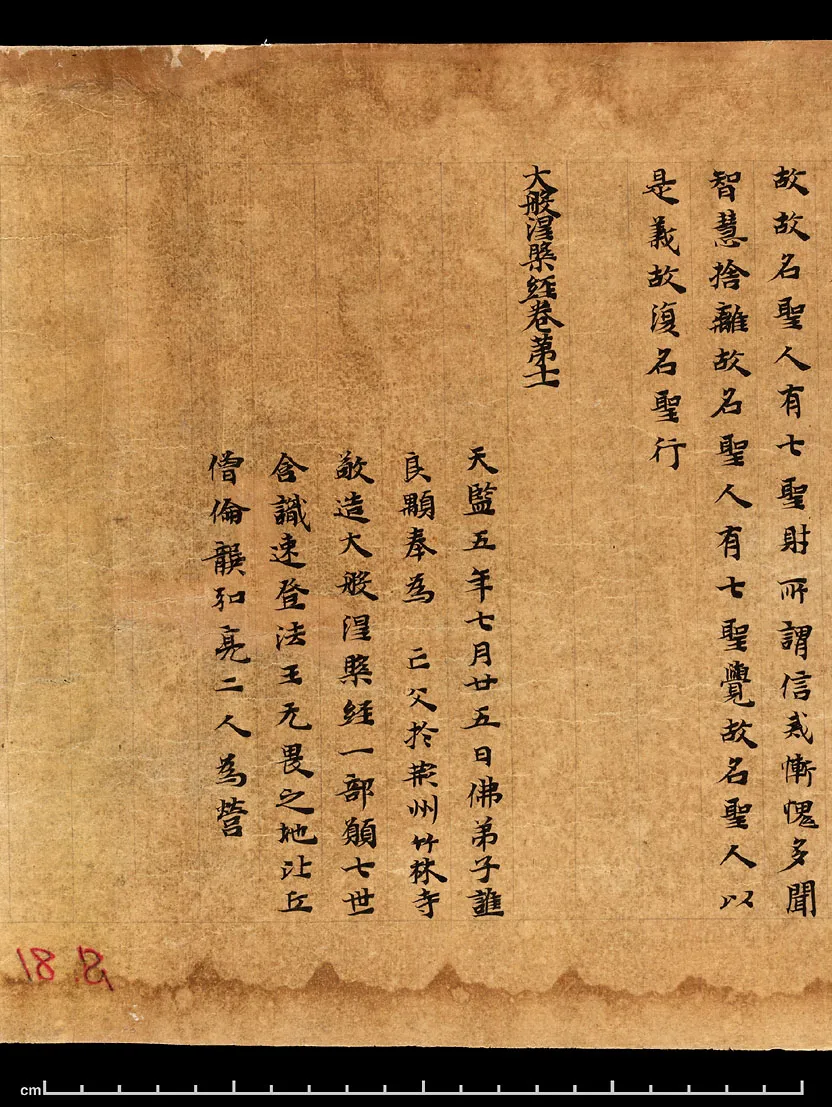 故故名聖人有七聖財所謂信戒慚愧多聞
智慧捨離故名聖人有七聖覺故名聖人以
是義故復名聖行
大般涅槃經卷第十一
天監五年七月廿五日佛弟子譙
良顒奉為 亡父於荊州竹林寺
敬造大般涅槃經一部願七世
含識速登法王无畏之地比丘
僧倫龔弘亮二人為營
18 S.